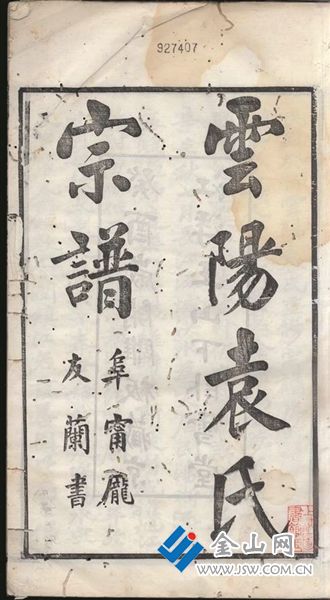 927407
雲陽袁氏
宗譜
阜甯龐
友蘭書
金山网
www.JSW.com.cn